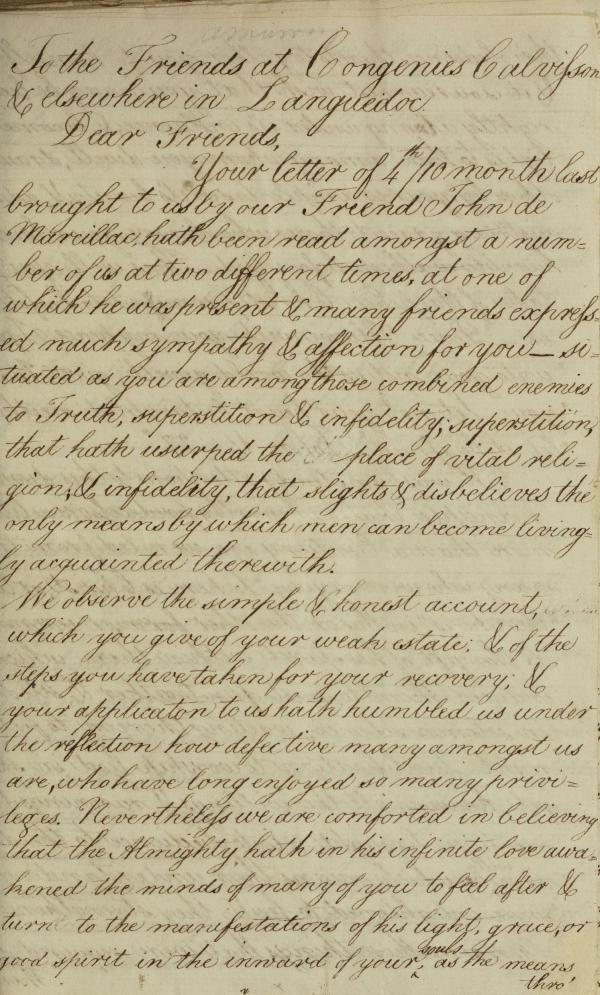 To the Friends at Congenies Calvisson
& elsewhere in Languedoc
Dear Friends,
Your letter of 4th/10 month last
brought to us by our Friend John de
Marcillac, hath been read amongst a num=
ber of us at two different times, at one of
which he was present & many friends express-
ed much sympathy & affection for you — si=
tuated as you are among those combined enemies
to Truth, superstition & infidelity; superstition,
that hath usurped the place of vital reli=
gion; & infidelity, that slights & disbelieves the
only means by which men can become living=
ly acquainted therewith.
We observe the simple & honest account,
which you give of your weak estate; & of the
steps you have taken for your recovery; &
your applicaton to us hath humbled us under
the reflection how defective many amongst us
are, who have long enjoyed so many privi=
leges. Nevertheless we are comforted in believing
that the Almighty hath in his infinite love awa=
kened the minds of many of you to feel after &
turn to the manifestations of his light, grace, or
good spirit in the inward of your ^souls as the means
thro'